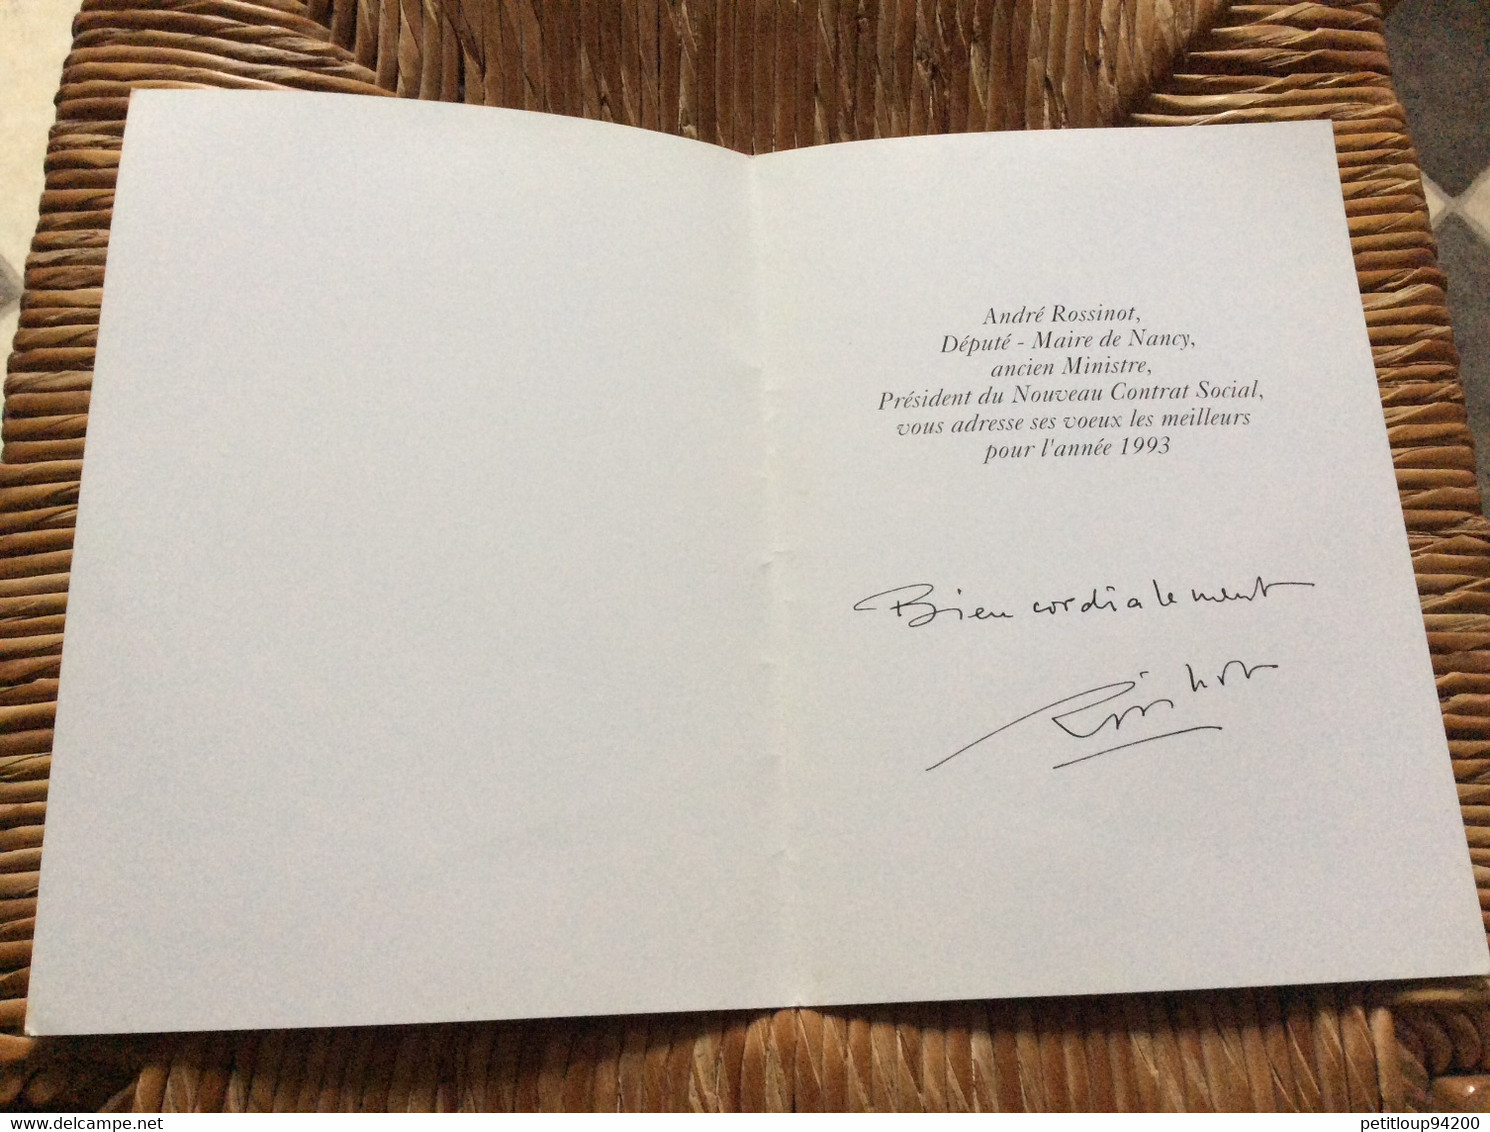 André Rossinot,
Député - Maire de Nancy,
ancien Ministre,
Président du Nouveau Contrat Social,
vous adresse ses voeux les meilleurs
pour l'année 1993
Bien cordialement
Rossinot
delcampe.net
petitloup94200